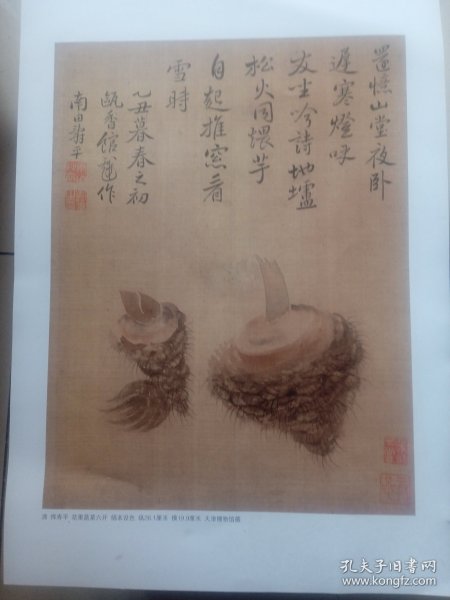 置憶山堂夜卧
遲寒燈呼
友坐吟詩地壚
松火同煨芋
自起推窓看
雪時
乙丑暮春之初
甌香館戲作
南田壽平
清 恽寿平 花果蔬菜六开 绢本设色 纵26.1厘米 横19.9厘米 天津博物馆藏
孔夫子旧书网
www.kongfz.com